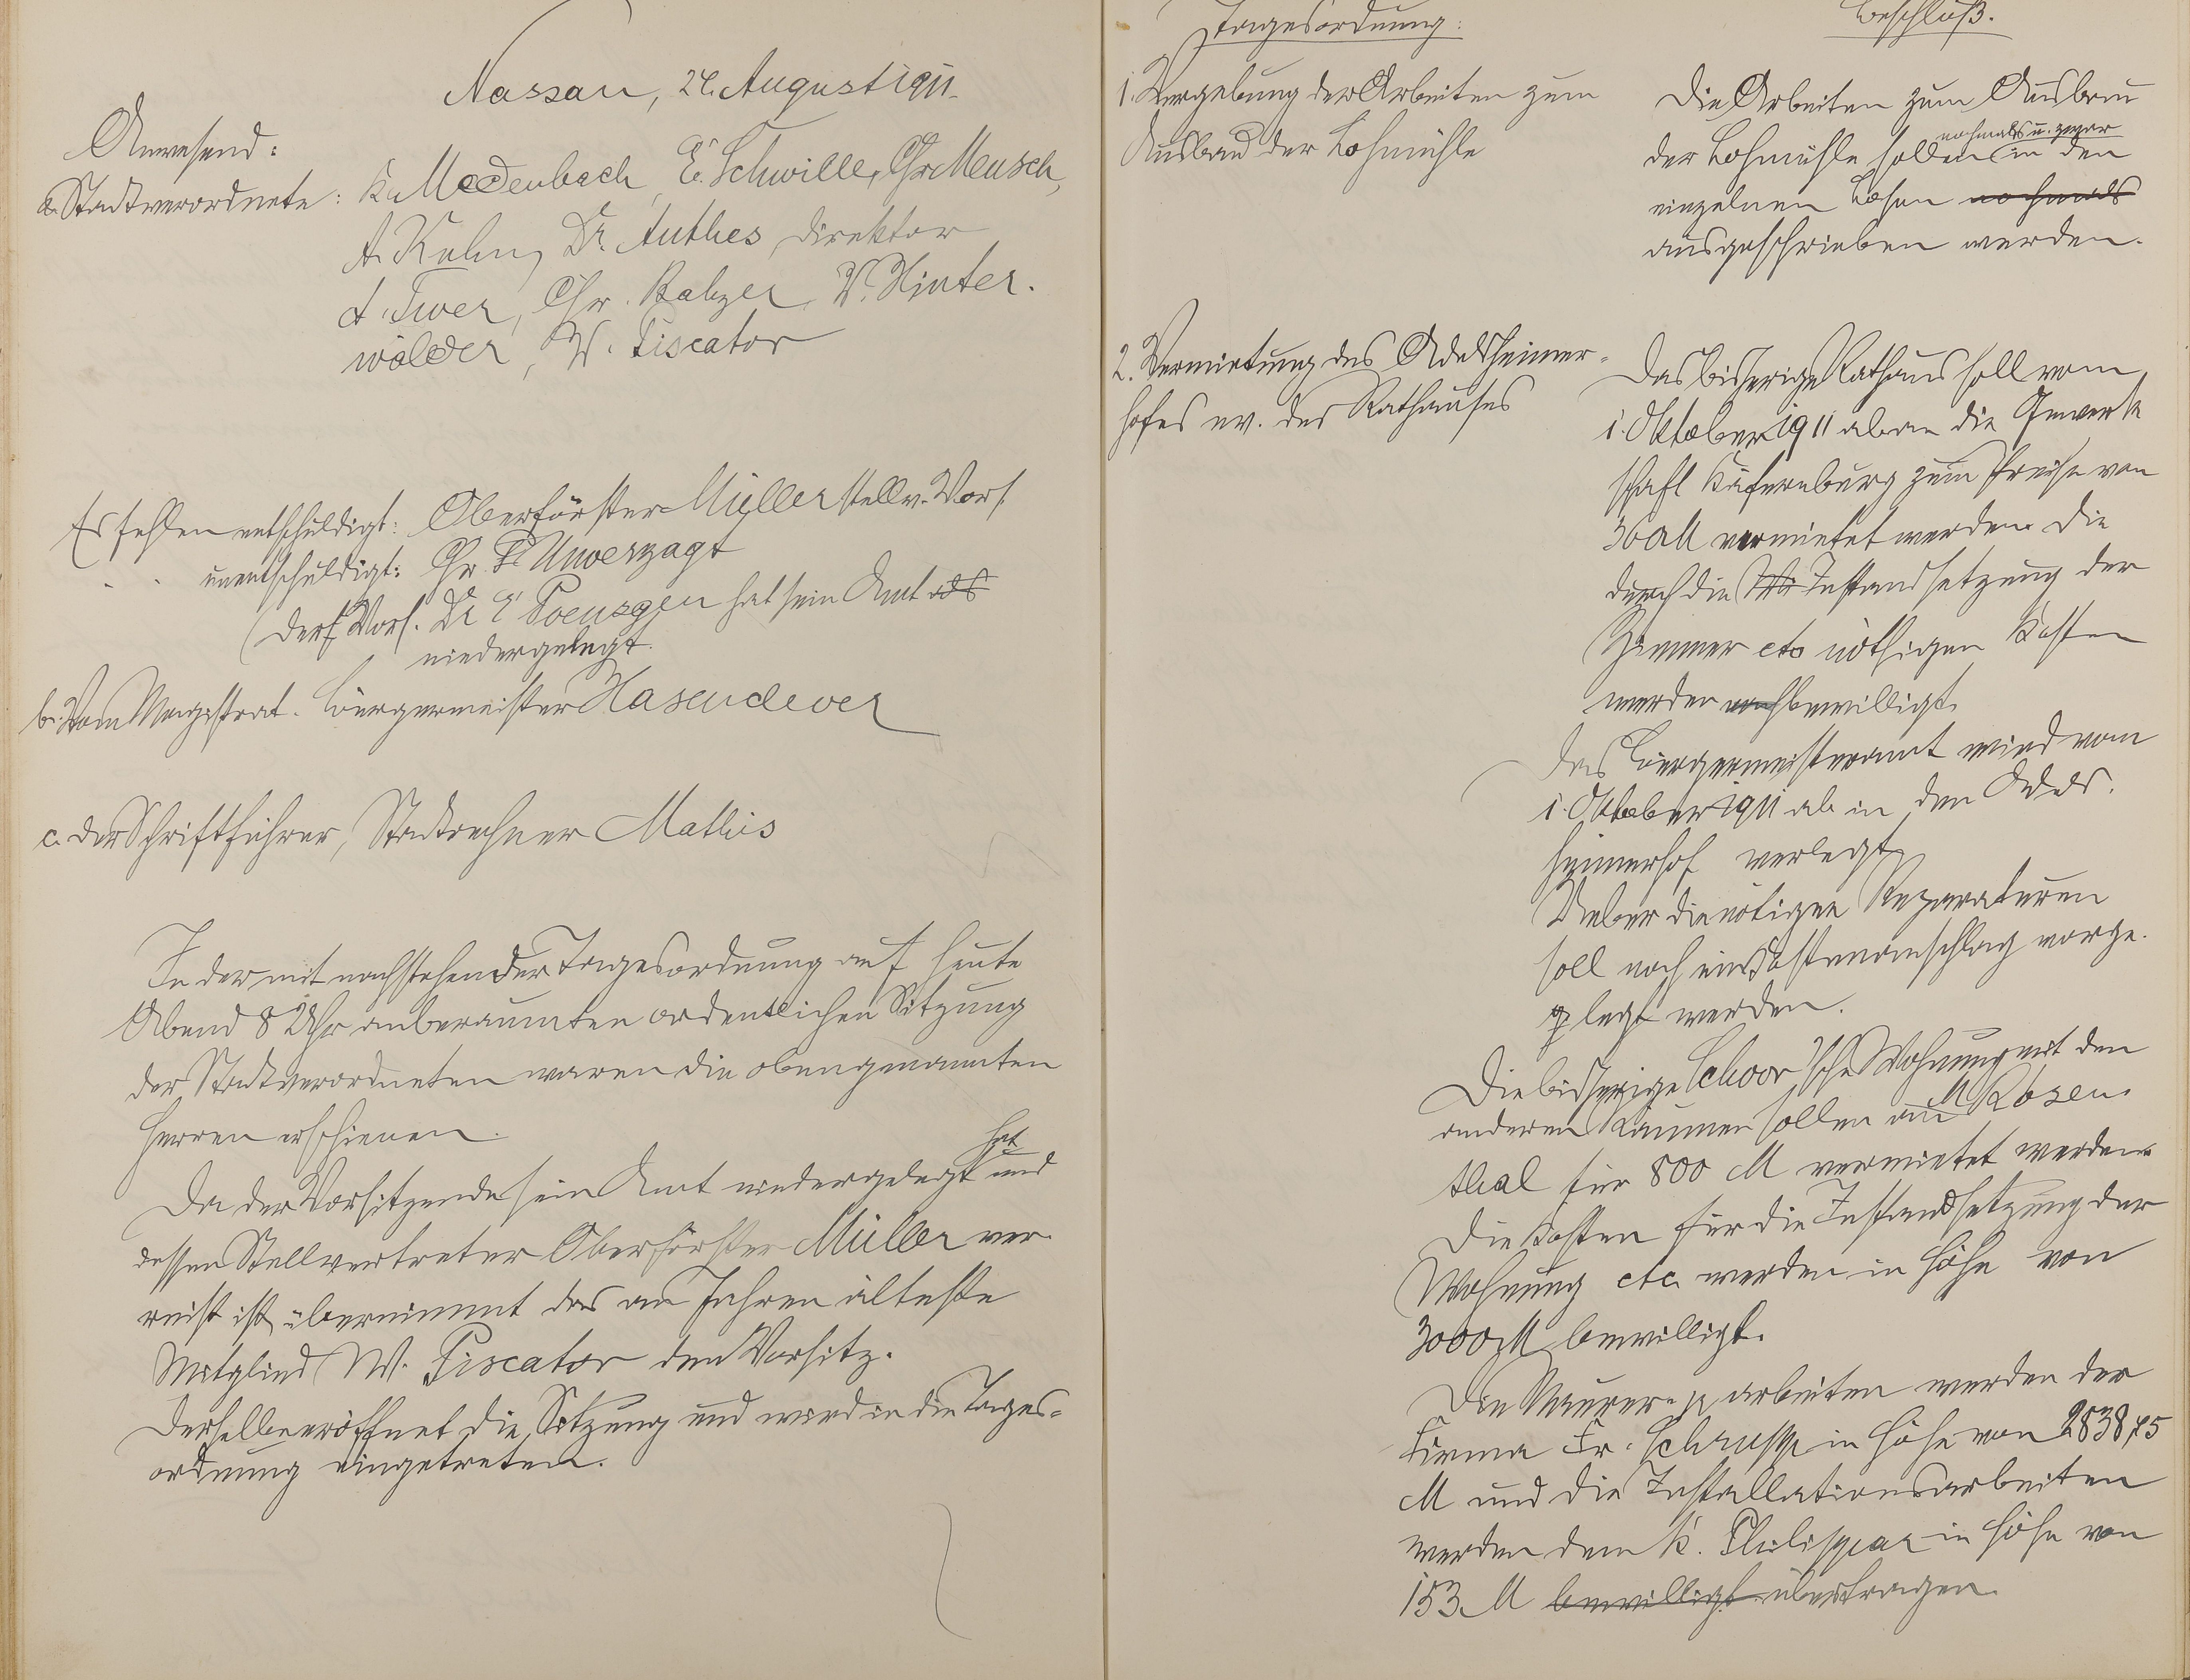 Nassau, 24. August 1911.
Anwesend:
a. Stadtverordnete: K. Medenbach, E. Schwille, Chr. Meusch,
A. Kuhn, Dr. Anthes, Direktor
A. Twer, Chr. Balzer, W. Hinter-
wälder, W. Piscator
Es fehlen entschuldigt: Oberförster Müller stellv. Vors.
" " unentschuldigt: Chr. Unverzagt
(Der Vors. Dr. E. Poensgen hat sein Amt als
niedergelegt.
b. Vom Magistrat. Bürgermeister Hasenclever
c. Der Schriftführer, Stadtrechner Mathis
In der mit nachstehender Tagesordnung auf heute
Abend 8 Uhr anberaumten ordentlichen Sitzung
der Stadtverordneten waren die obengenannten
Herren erschienen.
Da der Vorsitzende sein Amt niedergelegt hat und
dessen Stellvertreter Oberförster Müller ver-
reist ist, übernimmt das an Jahren älteste
Mitglied W. Piscator den Vorsitz.
Derselbe eröffnet die Sitzung und wird in die Tages-
ordnung eingetreten.
Tagesordnung:
1. Vergebung der Arbeiten zum
Ausbau der Lohmühle
2. Vermietung des Adelsheimer-
hofes ev. des Rathauses
Beschluß.
Die Arbeiten zum Ausbau
der Lohmühle sollen nochmals u. zwar in den
einzelnen Losen nochmals
ausgeschrieben werden.
Das bisherige Rathaus soll vom
1. Oktober 1911 ab an die Gewerk
schaft Käfernburg zum Preise von
300 M vermietet werden. Die
durch die Instandsetzung der
Zimmer etc nöthigen Kosten
werden noch bewilligt.
Das Bürgermeisteramt wird vom
1. Oktober 1911 ab in den Adels-
heimerhof verlegt.
Ueber die nötigen Reparaturen
soll noch ein Kostenanschlag vorge-
legt werden.
Die bisherige Schoor'sche Wohnung mit den
anderen Räumen sollen an M Rosen-
thal für 800 M vermietet werden.
Die Kosten für die Instandsetzung der
Wohnung etc. werden in Höhe von
3000 M bewilligt.
Die Maurer- pp arbeiten werden der
Firma Fr. Schrupp in Höhe von 2838,75
M und die Installationsarbeiten
werden dem K. Philippar in Höhe von
153 M bewilligt übertragen.